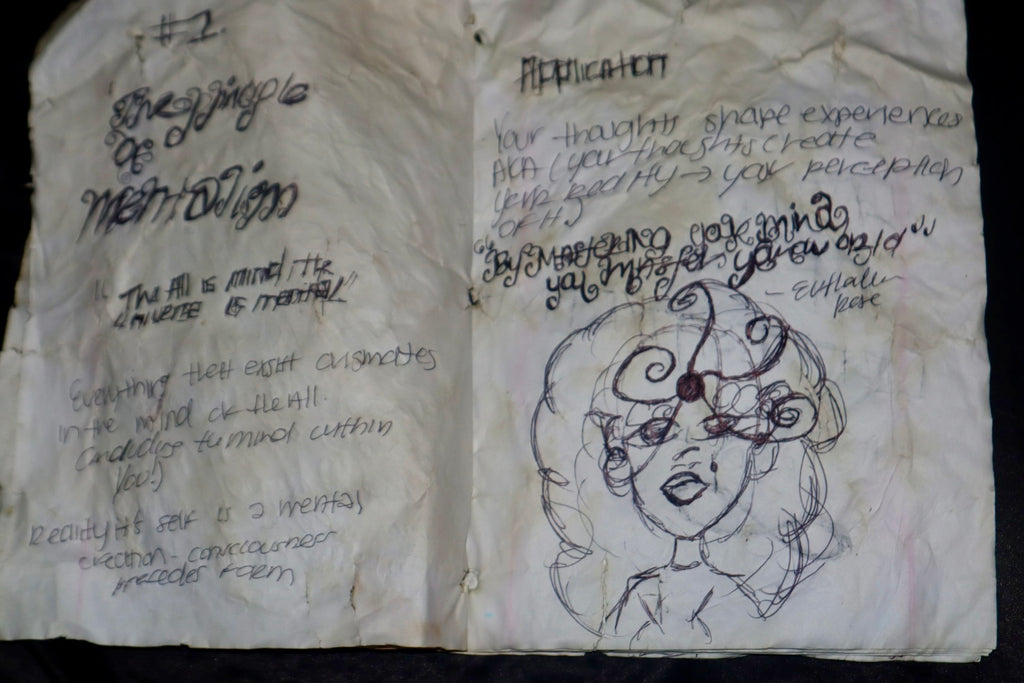 #1
"The principle
Of
mentalism
"The All is mind; the
universe is mental"
Everything that exist origmates
in the mind of the All.
(includes the mind within
You!)
Reality it's self is a mental
creation - consciousness
precedes form
Application
Your thoughts shape experiences
AKA (your thoughts create
your reality → your perception
OF it)
"By mastering your mind
you master your world"
- 
Rose